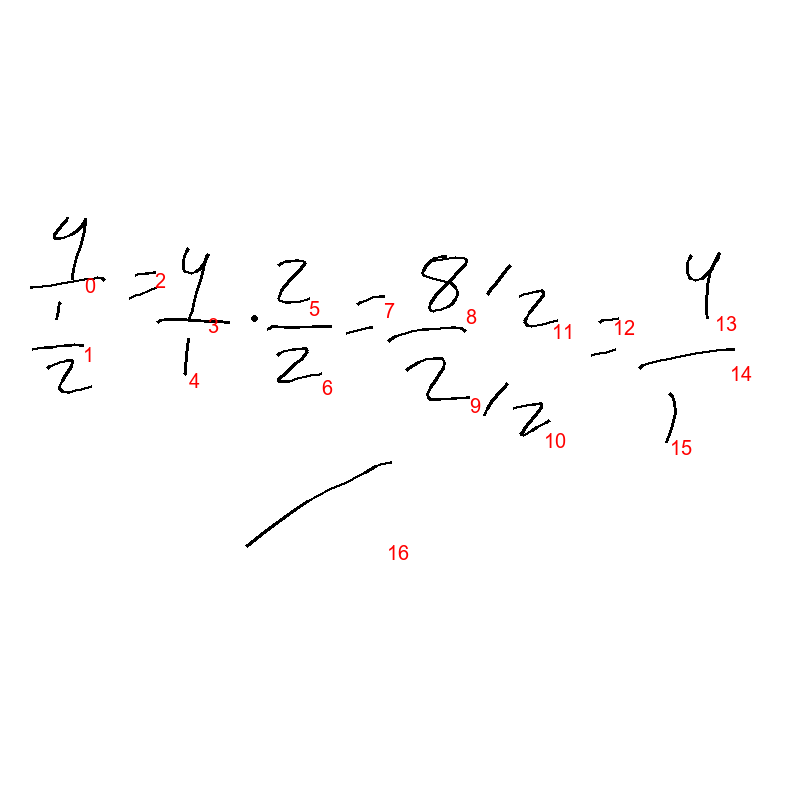 4/(1/2) = 4/1 · 2/2 = (8/2)/(2/2) = 4/1
0 1 2 3 4 5 6 7 8 9 10 11 12 13 14 15 16